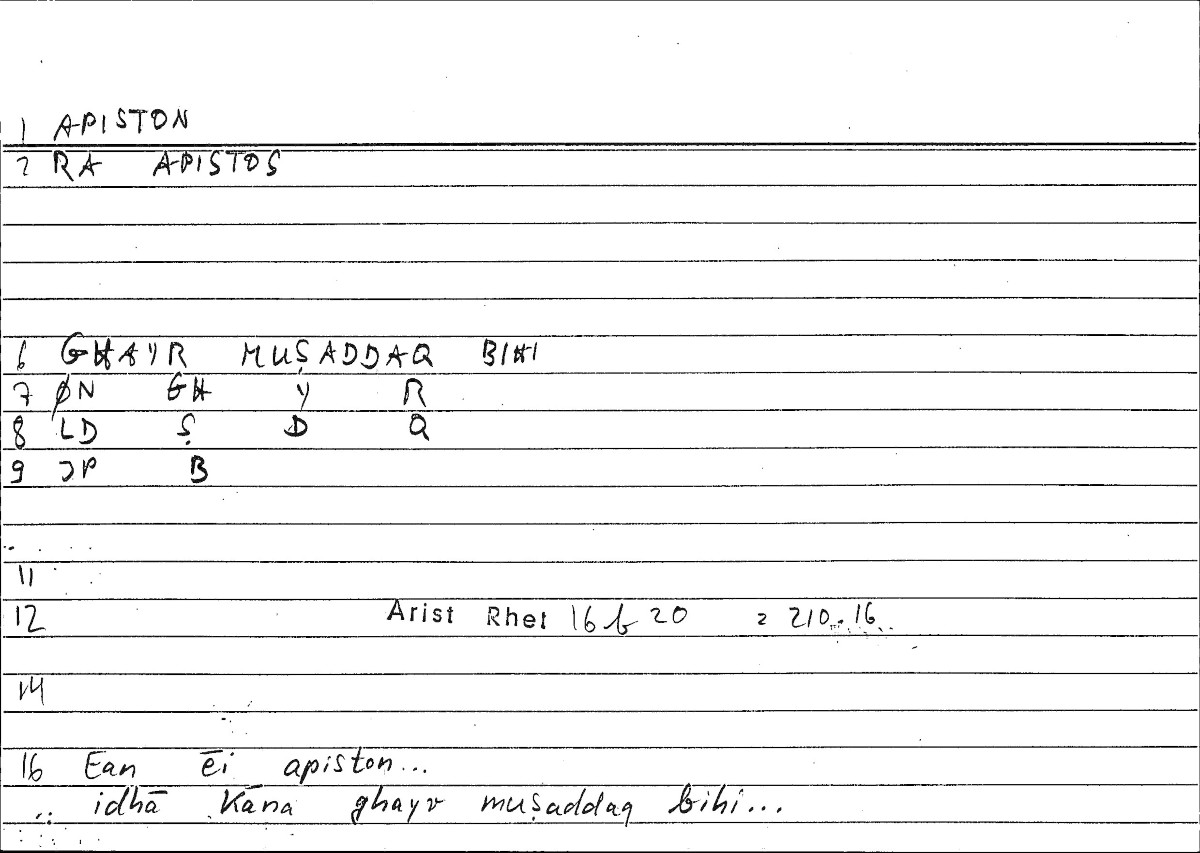 1 APISTON
2 RA APISTOS
6 GHAYR MUṢADDAQ BIHI
7 ØN GH Y R
8 LD Ṣ D Q
9 JP B
11
12 Arist Rhet 16 b 20 = 210.16
14
16 Ean ēi apiston...
idhā Kāna ghayr muṣaddaq bihi...